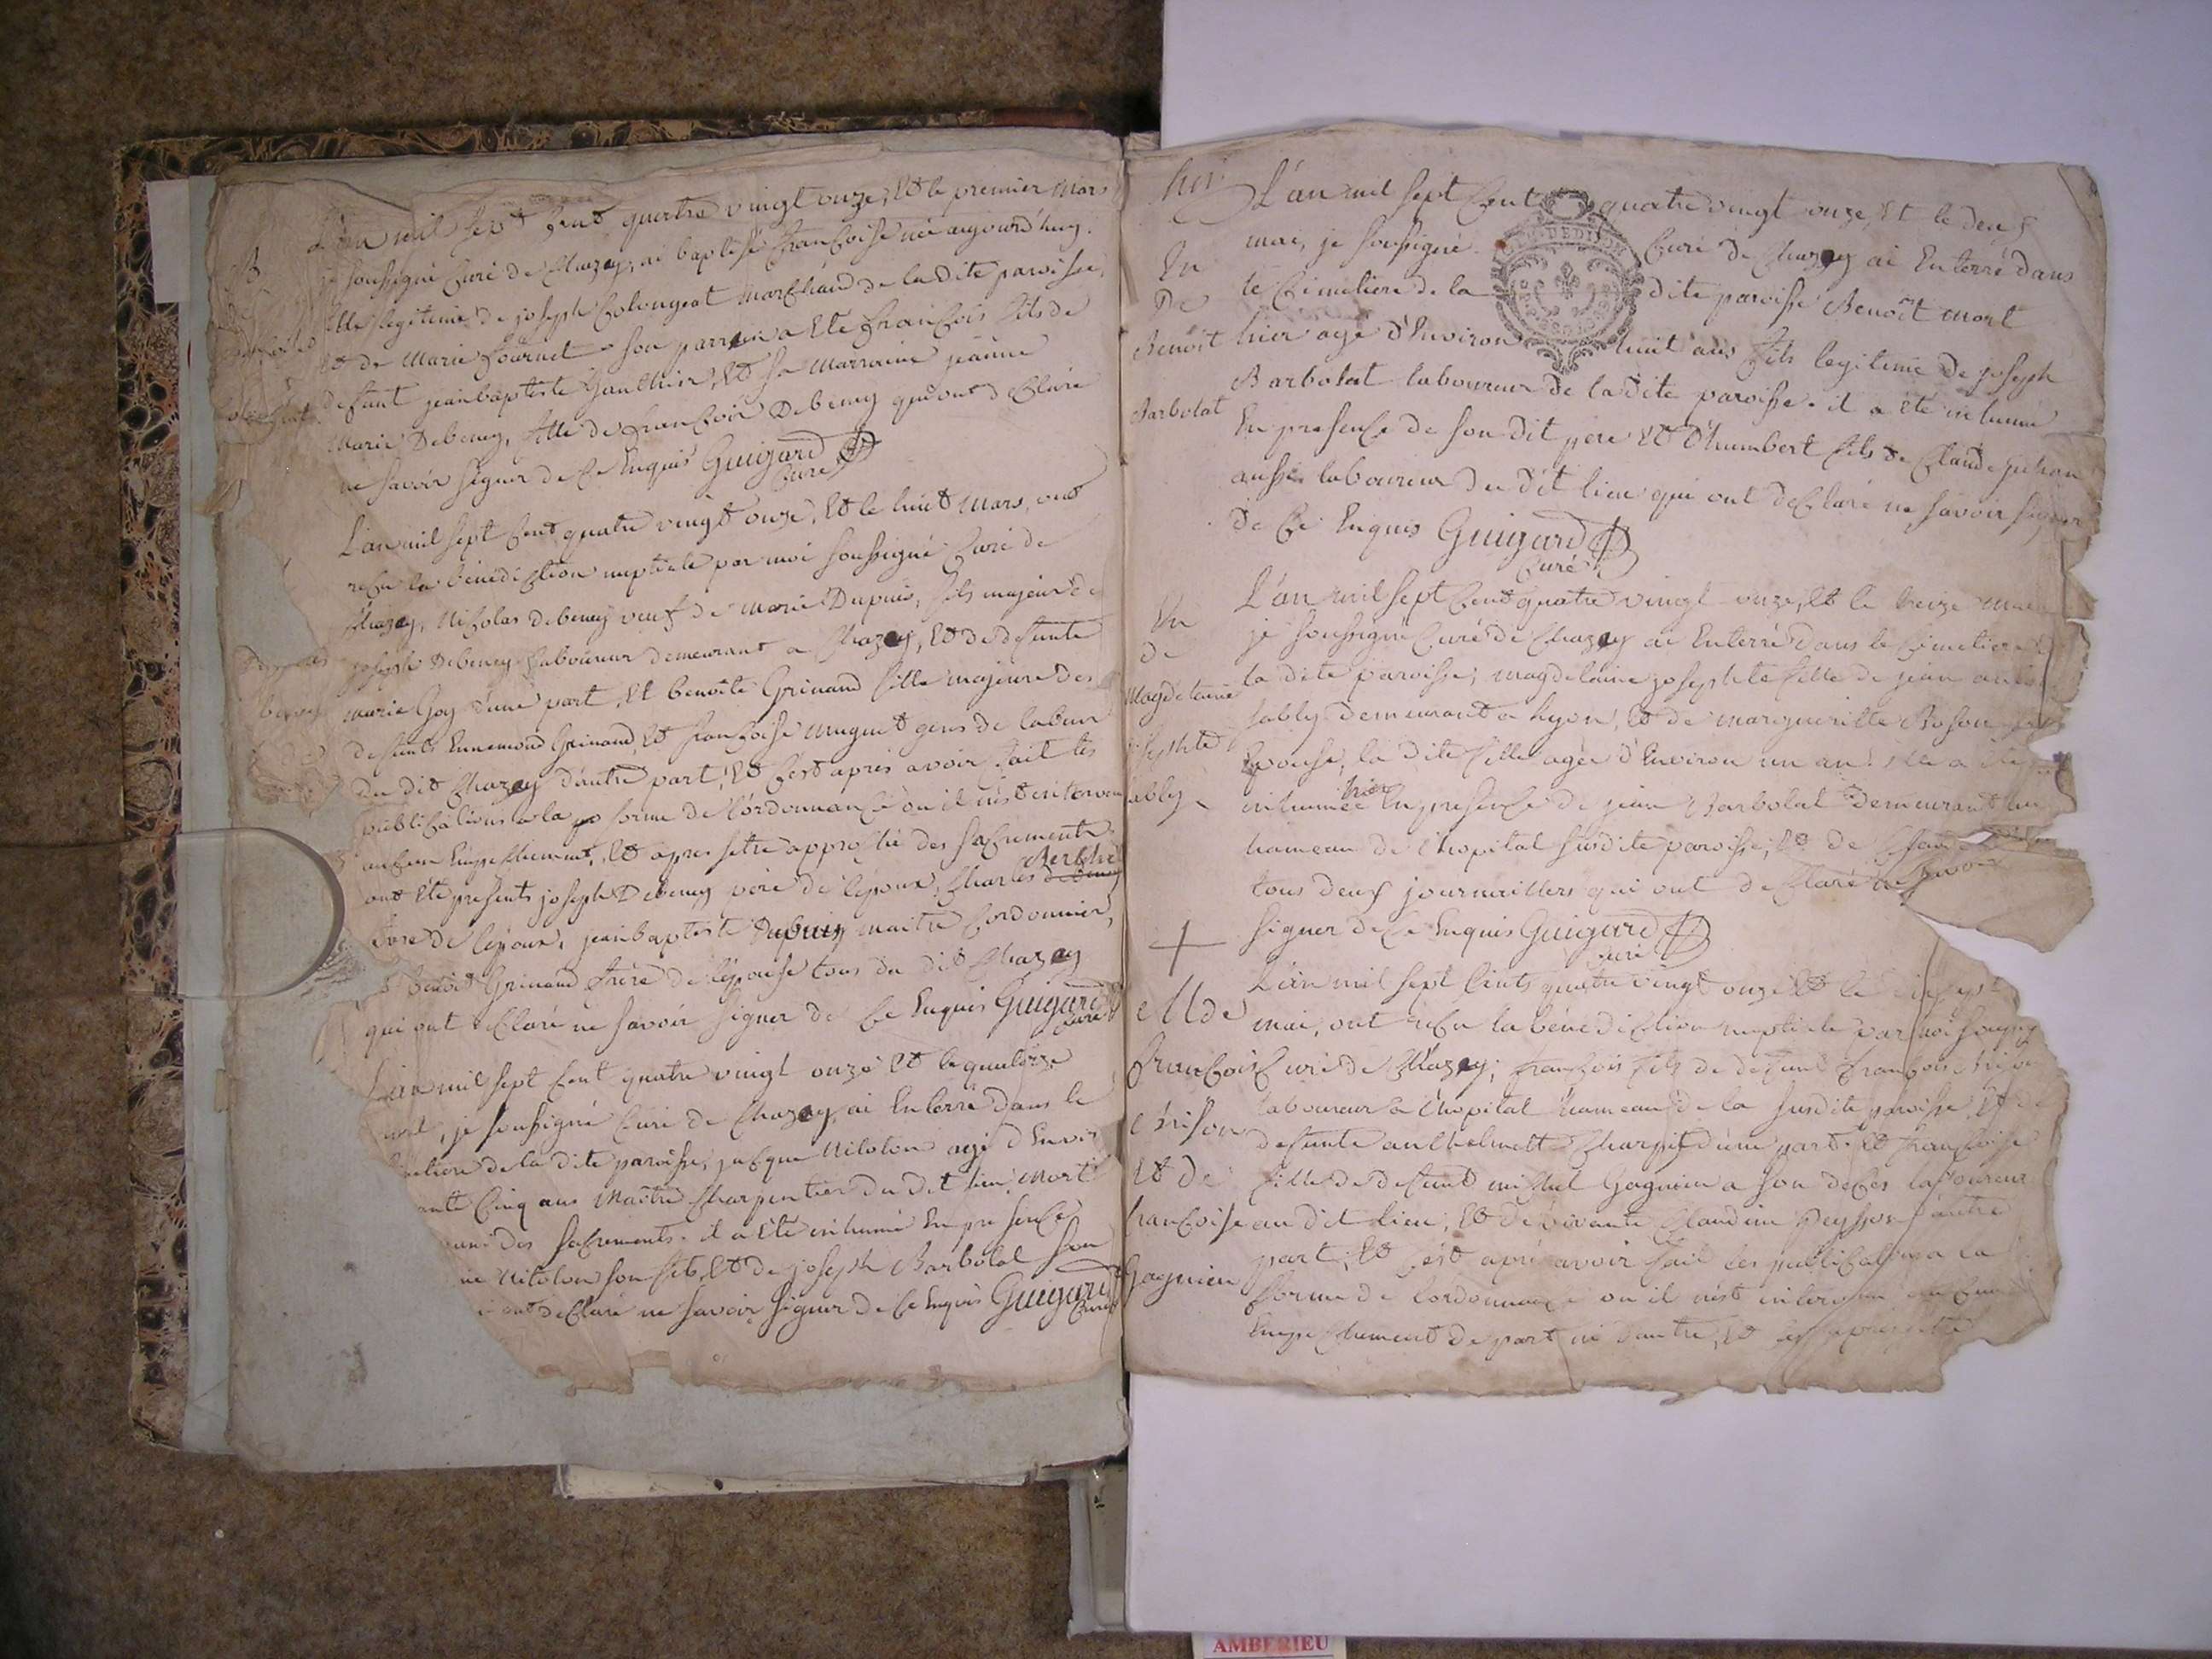 L'an mil sept cent quatre vingt onze, et le premier mars
je soussigné curé de Chazey, ai baptisé françoise née aujourd'huy.
fille legitime de joseph Colongeat marchand de la dite paroisse,
et de Marie fournet son parrain a été françois fils de
defunt jean baptiste Gauthier, et sa marraine jeanne
Marie Debeney, fille de françois Debeney qui ont déclaré
ne savoir signer de ce enquis Guigard
curé
B
L'an mil sept cent quatre vingt onze, et le huit mars, ont
reçu la bénédiction nuptiale par moi soussigné curé de
Chazey, Nicolas debeney veuf de marie Dupuis, fils majeur de
joseph Debeney laboureur demeurant a Chazey, et de defunte
marie Goy d'une part, et benoite Grinand fille majeure des
defunts Ennemond Grinand, et françoise muguet gens de labeur
du dit Chazey d'autre part, et c'est après avoir fait les
publications a la forme de l'ordonnance ou il n'est intervenu
aucun empechement, et apres s'etre approché des sacrements
ont été presents joseph Debeney père de l'époux, Charles debeney
frere de l'epoux, jean baptiste Dupuis maitre cordonnier,
benoit Grinand frère de l'épouse tous du dit Chazey
qui ont déclaré ne savoir signer de ce enquis Guigard
curé
L'an mil sept cent quatre vingt onze et le quatorze
je soussigné curé de Chazey, ai enterré dans le
de la dite paroisse, jacque Nitolon agé d'env
cinq ans Maître charpentier du dit lieu, mort
des sacrements. il a été inhumé en presence
Nitolon son fils, et de joseph Barbolat son
ont déclaré ne savoir signer de ce enquis Guigard
curé
L'an mil sept cent quatre vingt onze, et le deux
mai, je soussigné curé de Chazey ai enterré dans
le cimetiere de la dite paroisse Benoît mort
hier agé d'environ huit ans fils legitime de joseph
Barbolat laboureur de la dite paroisse. il a été inhumé
en presence de son dit pere et d'humbert fils de Claude
aussi laboureur du dit lieu qui ont déclaré ne savoir signer
de ce enquis Guigard
curé
En
De
Benoît
Barbolat
L'an mil sept cent quatre vingt onze, et le treize mai
je soussigné curé de Chazey ai enterré dans le cimetiere
la dite paroisse, magdelaine josephte fille de jean
sably demeurant a Lyon, et de marguerite Boson
epouse, la dite fille agée d'environ un an. elle a été
inhumée hier en presence de jean Barbolat demeurant au
hameau de l'hopital susdite paroisse, et de Claude
tous deux journaillers qui ont déclaré ne savoir
signer de ce enquis Guigard
curé
En
de
Magdelaine
josephte
sably
L'an mil sept cents quatre vingt onze et le
mai, ont reçu la bénédiction nuptiale par moi soussigné
curé de Chazey, françois fils de defunt françois
laboureur a l'hopital hameau de la susdite paroisse et de
defunte anthelmette Charpit d'une part et françoise
fille de defunt michel Gagnieu a son décès laboureur
au dit lieu, et de vivante Claudine Peysson d'autre
part, et c'est apres avoir fait les publications a la
forme de l'ordonnance ou il n'est intervenu aucun
empechement de part ni d'autre, et
Mde
françois
et de
françoise
Gagnieu
AMBERIEU